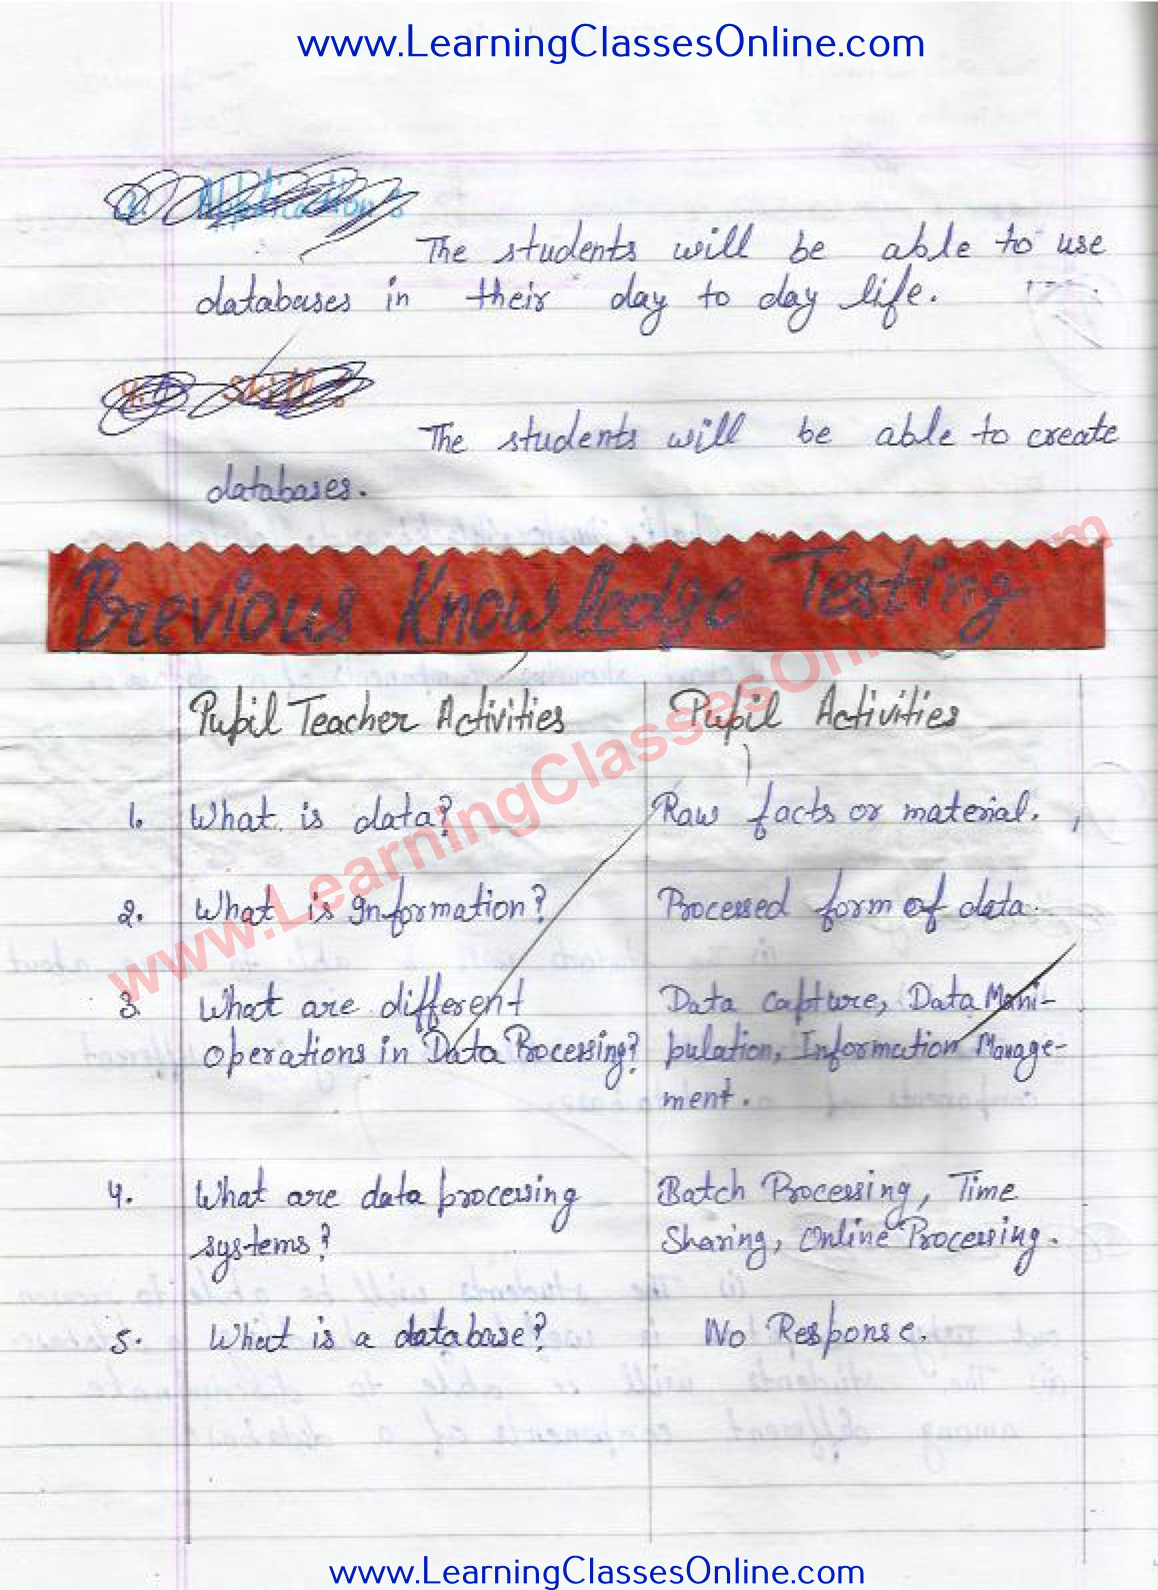 www.LearningClassesOnline.com
Application :
The students will be able to use
databases in their day to day life.
4. Skill :
The students will be able to create
databases.
Previous Knowledge Testing
Pupil Teacher Activities Pupil Activities
1. What is data? Raw facts or material.
2. What is Information? Processed form of data.
3. What are different Data Capture, Data Mani-
operations in Data Processing? pulation, Information Manage-
ment.
4. What are data processing Batch Processing, Time
systems? Sharing, Online Processing.
5. What is a database? No Response.
www.LearningClassesOnline.com
www.LearningClassesOnline.com